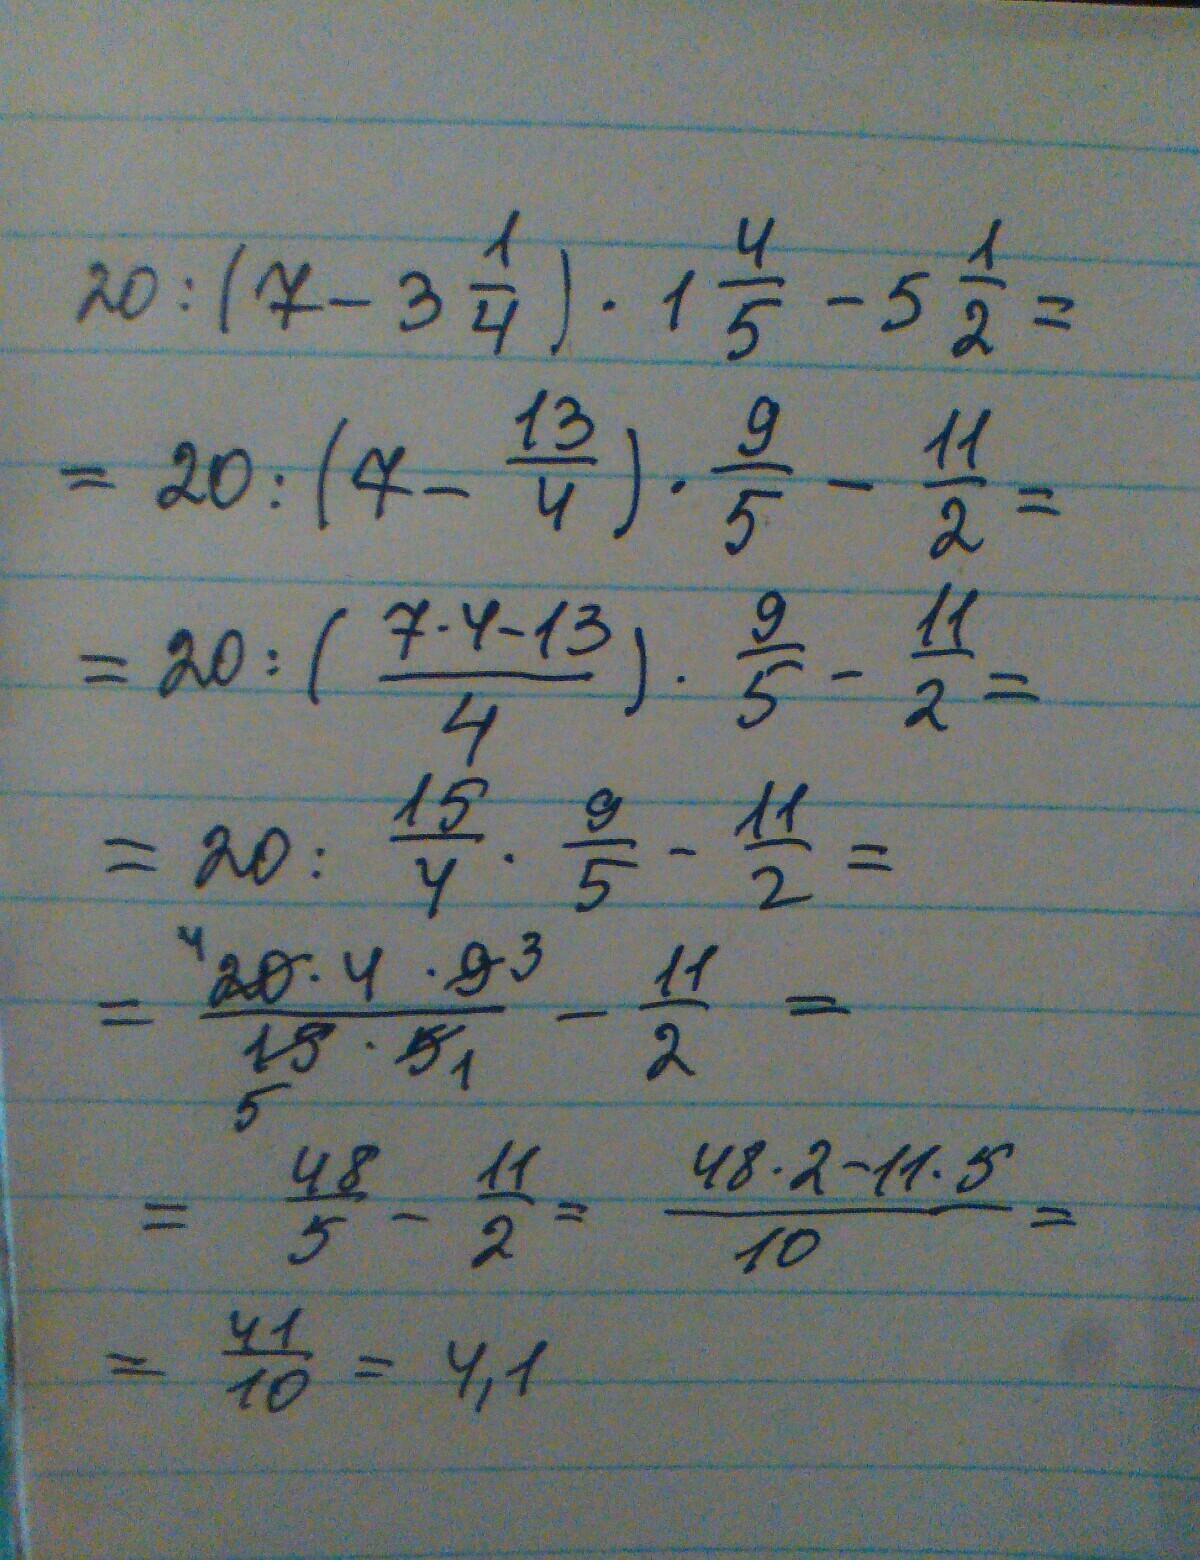 20:(7-3 1/4)·1 4/5-5 1/2=
=20:(7-13/4)·9/5-11/2=
=20:((7·4-13)/4)·9/5-11/2=
=20:15/4·9/5-11/2=
=(⁴20·4·9³)/(15₅·5₁)-11/2=
=48/5-11/2=(48·2-11·5)/10=
=41/10=4,1